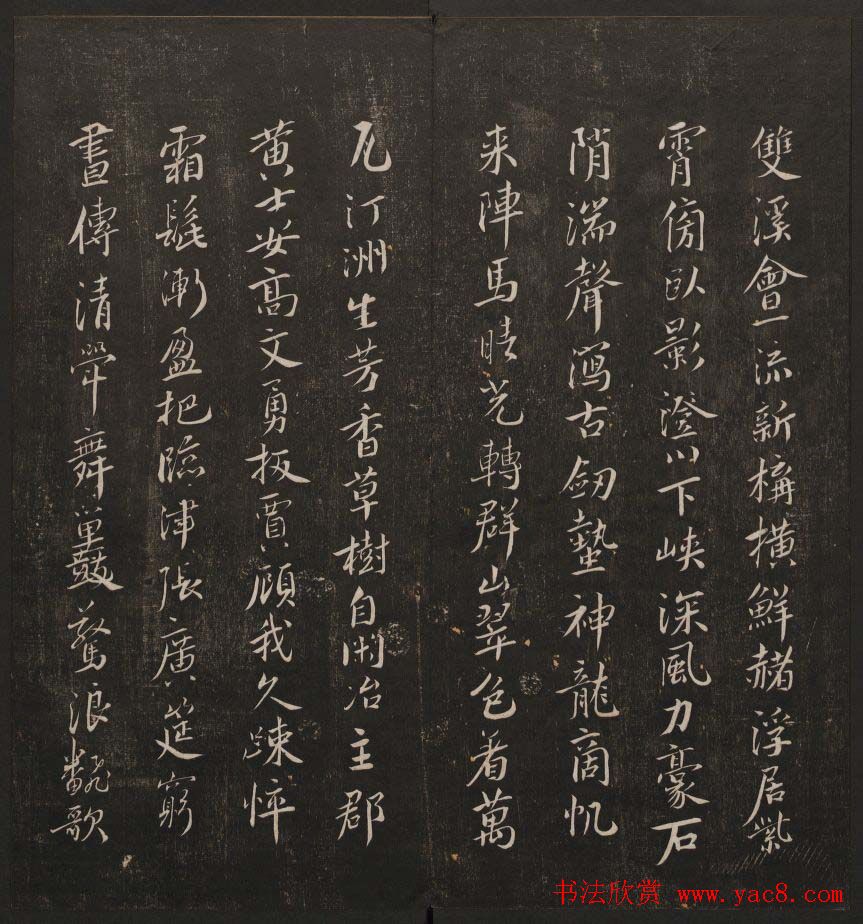 雙溪會一流新構橫鮮赭浮居紫
霄傍臥影澄川下峽深風力豪石
陗湍聲瀉古劒蟄神龍商帆
来陣馬晴光轉群山翠色着萬
瓦汀洲生芳香草樹自閑冶主郡
黄士安高文勇扳賈顧我久疎悴
霜髭漸盈把臨津張廣筵窮
晝傳清斝舞鼓驚浪飜歌
书法欣赏 www.yac8.com